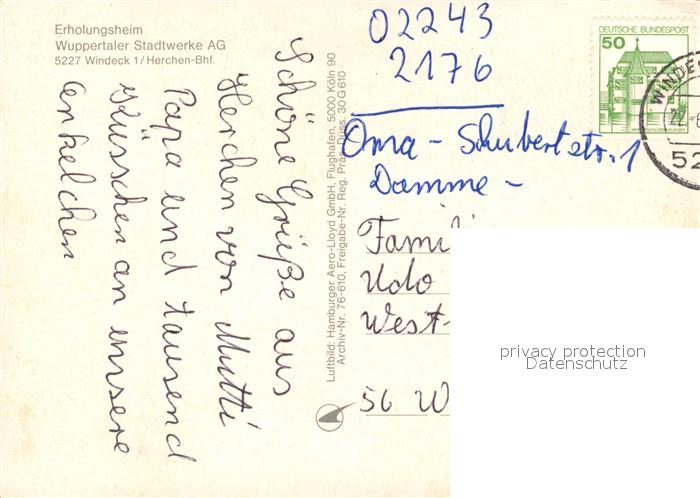 Erholungsheim
Wuppertaler Stadtwerke AG
5227 Windeck 1/Herchen-Bhf.
Schöne Grüße aus
Herchen von Mutti
Papa und tausend
Küsschen an unsere
Enkelchen
Luftbild: Hamburger Aero-Lloyd GmbH, Flughafen, 5000 Köln 90
Archiv-Nr. 76-610, Freigabe-Nr. Reg. Präs. Düss. 30 G 610
02243
2176
Oma - Schubertstr. 1
Damme -
Famil
Udo
West-
56 W
DEUTSCHE BUNDESPOST
50
WINDEC
22.-
52
privacy protection
Datenschutz